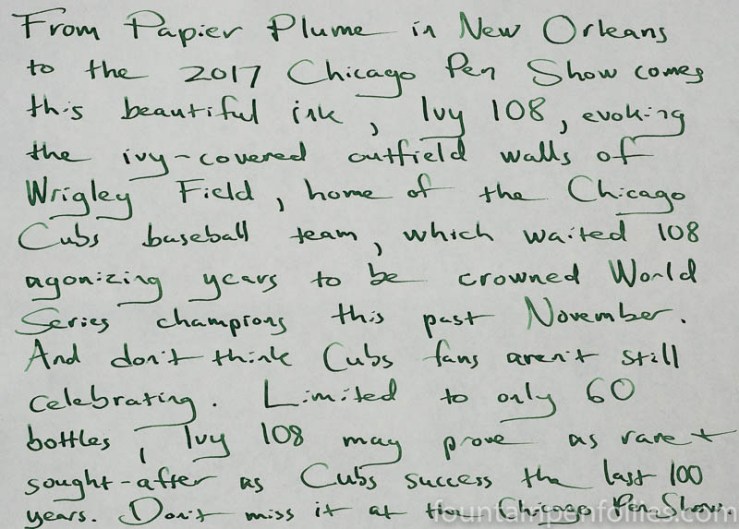 From Papier Plume in New Orleans
to the 2017 Chicago Pen Show comes
this beautiful ink, Ivy 108, evoking
the ivy-covered outfield walls of
Wrigley Field, home of the Chicago
Cubs baseball team, which waited 108
agonizing years to be crowned World
Series champions this past November.
And don't think Cubs fans aren't still
celebrating. Limited to only 60
bottles, Ivy 108 may prove as rare +
sought-after as Cubs success the last 100
years. Don't miss it at the Chicago Pen Show.
fountainpenfollies.com